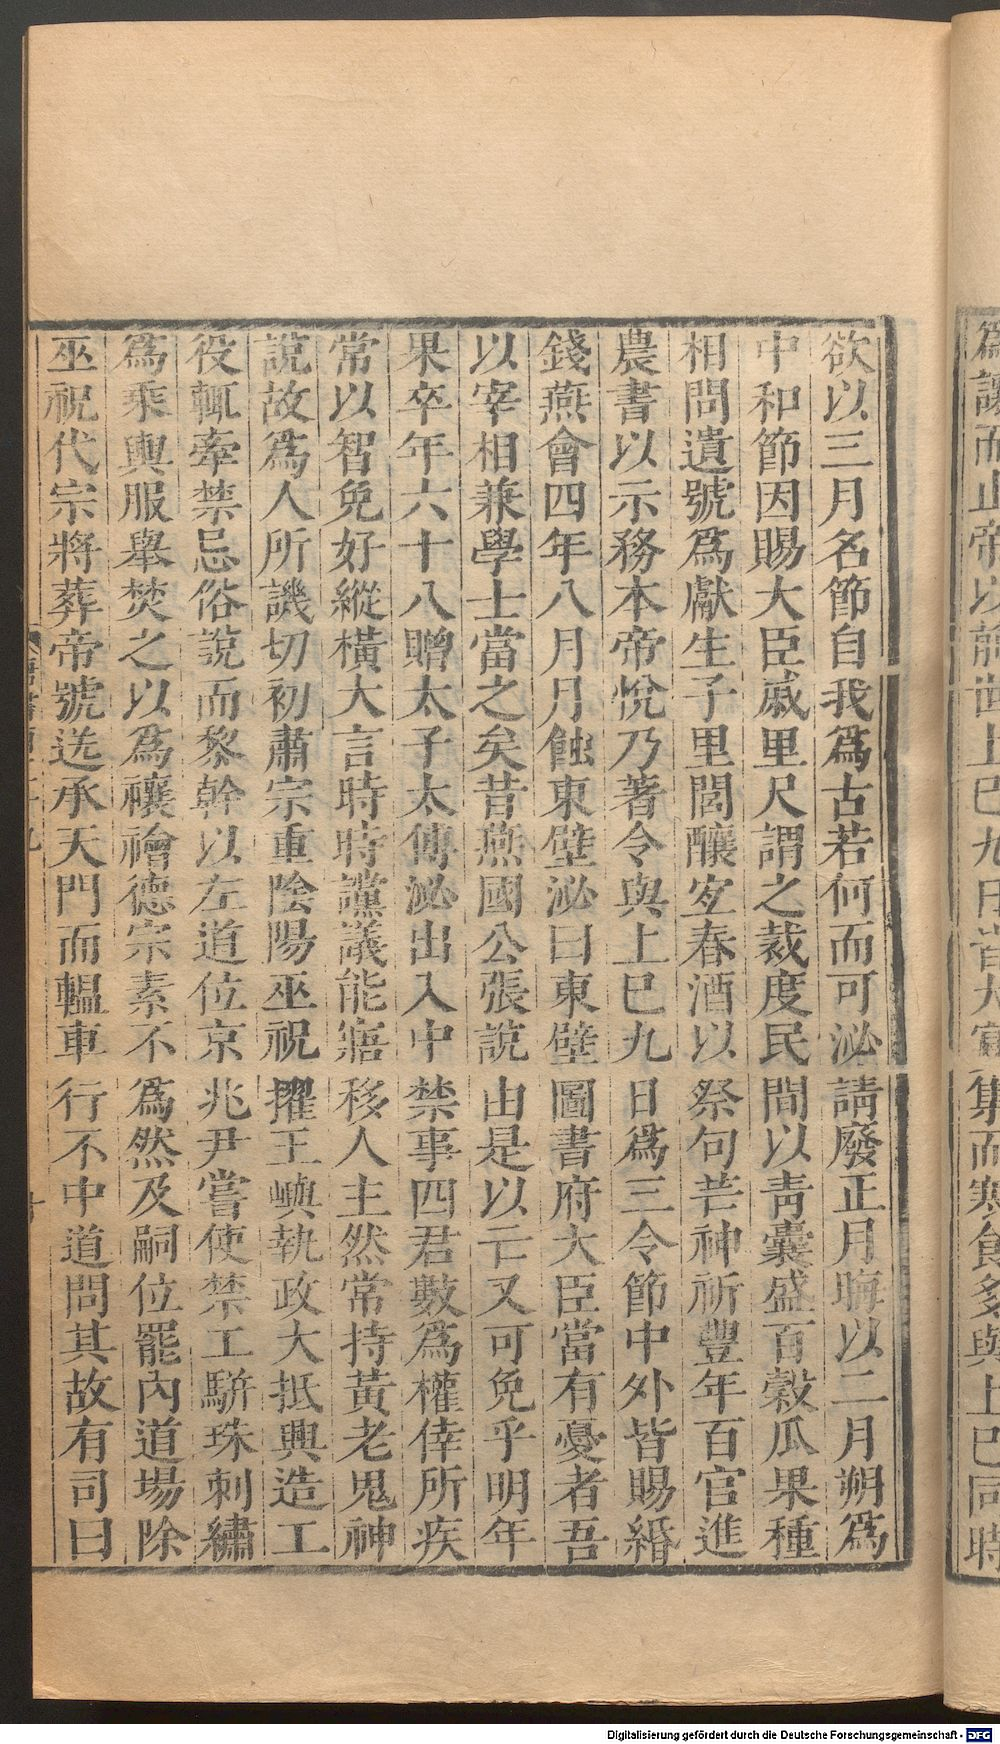 爲讓而止帝以前世上巳九日皆大宴集而寒食多與上巳同時
欲以三月名節自我爲古若何而可泌請廢正月晦以二月朔爲
中和節因賜大臣戚里尺謂之裁度民間以青囊盛百穀瓜果種
相問遺號爲獻生子里閭釀宜春酒以祭句芒神祈豐年百官進
農書以示務本帝悅乃著令與上巳九日爲三令節中外皆賜緡
錢燕會四年八月月蝕東壁泌曰東壁圖書府大臣當有憂者吾
以宰相兼學士當之矣昔燕國公張說由是以亡又可免乎明年
果卒年六十八贈太子太傅泌出入中禁事四君數爲權倖所疾
常以智免好縱橫大言時時讜議能寤移人主然常持黃老鬼神
說故爲人所譏切初肅宗重陰陽巫祝擢王嶼執政大抵興造工
役輒牽禁忌俗說而黎幹以左道位京兆尹嘗使禁工騈珠刺繡
爲乘輿服舉焚之以爲禳禬德宗素不爲然及嗣位罷內道場除
巫祝代宗將葬帝號送承天門而轀車行不中道問其故有司曰
Digitalisierung gefördert durch die Deutsche Forschungsgemeinschaft - DFG